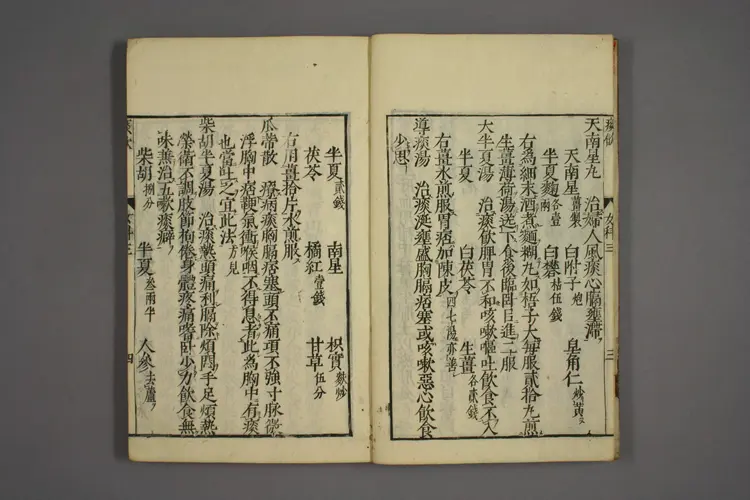 天南星丸　治婦人風痰心膈壅滯
天南星薑製　白附子炮　皂角仁炒黃
半夏麯各壹兩　白礬枯伍錢
右為細末酒煮麵糊丸如梧子大每服貳拾丸煎
生薑薄荷湯送下食後臨臥日進二服
大半夏湯　治痰飲脾胃不和咳嗽嘔吐飲食不入
半夏　白茯苓　生薑各貳錢
右薑水煎服胃痞加陳皮四七湯亦善
導痰湯　治痰涎壅盛胸膈痞塞或咳嗽惡心飲食
少思
三
半夏貳錢　南星　枳實麩炒
茯苓　橘紅壹錢　甘草伍分
右用薑拾片水煎服
瓜蒂散　療病痰胸膈痞塞頭不痛項不強寸脉微
浮胸中痞鞕氣衝喉咽不得息者此為胸中有痰
也當吐之宜此法方見
柴胡半夏湯　治痰熱頭痛利膈除煩悶手足煩熱
榮衛不調皮節拘倦身體疼痛嗜臥少力飲食無
味兼治五嗽痰癖
柴胡捌分　半夏叁兩半　人參去蘆
女科三
四